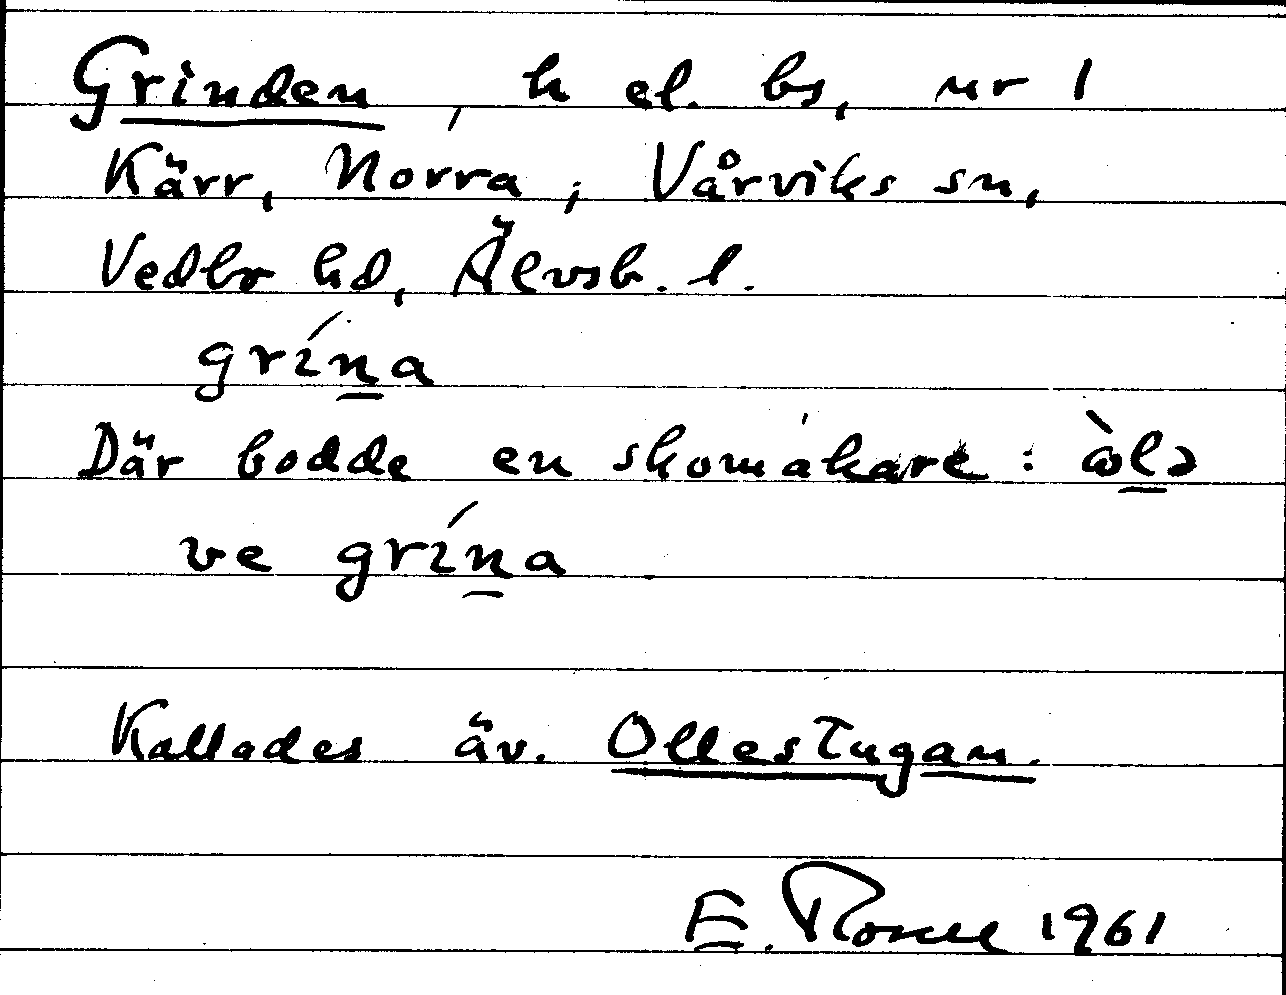 Grinden, h el. bs, ur 1
Kärr, Norra, Vårviks sn,
Vedbo hd, Älvsb. l.
grína
Där bodde en skomakare: òlə
ve grína
Kallades äv. Ollestugan.
E. 1961